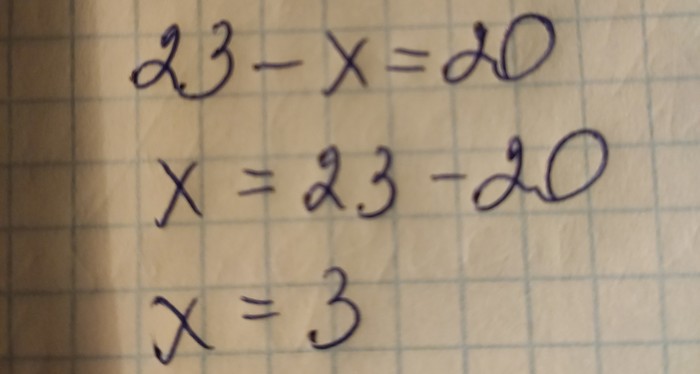 23 - x = 20
x = 23 - 20
x = 3